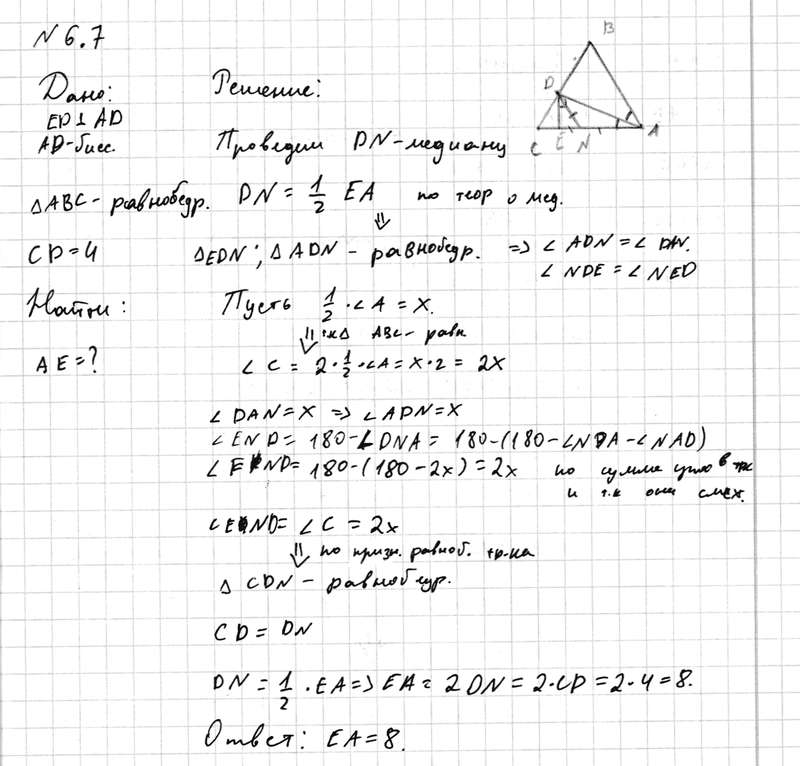 N 6.7
B
D
C E N A
Дано:
ED ⊥ AD
AD-бисс.
△ABC - равнобедр.
CD = 4
Найти:
AE = ?
Решение:
Проведем DN-медиану
DN = 1/2 EA по теор о мед.
⇓
△EDN; △ADN - равнобедр. => ∠ADN = ∠DAN.
∠NDE = ∠NED
Пусть 1/2 · ∠A = X.
⇓ т.к △ ABC - равн
∠C = 2 · 1/2 · ∠A = X · 2 = 2X
∠DAN = X => ∠ADN = X
∠END = 180 - ∠DNA = 180 - (180 - ∠NDA - ∠NAD)
∠END = 180 - (180 - 2x) = 2x по сумме углов в тр-ке
и т.к они смеж.
∠END = ∠C = 2x
⇓ по призн. равноб. тр-ка
△ CDN - равнобедр.
CD = DN
DN = 1/2 · EA => EA = 2DN = 2·CD = 2·4 = 8.
Ответ: EA = 8.